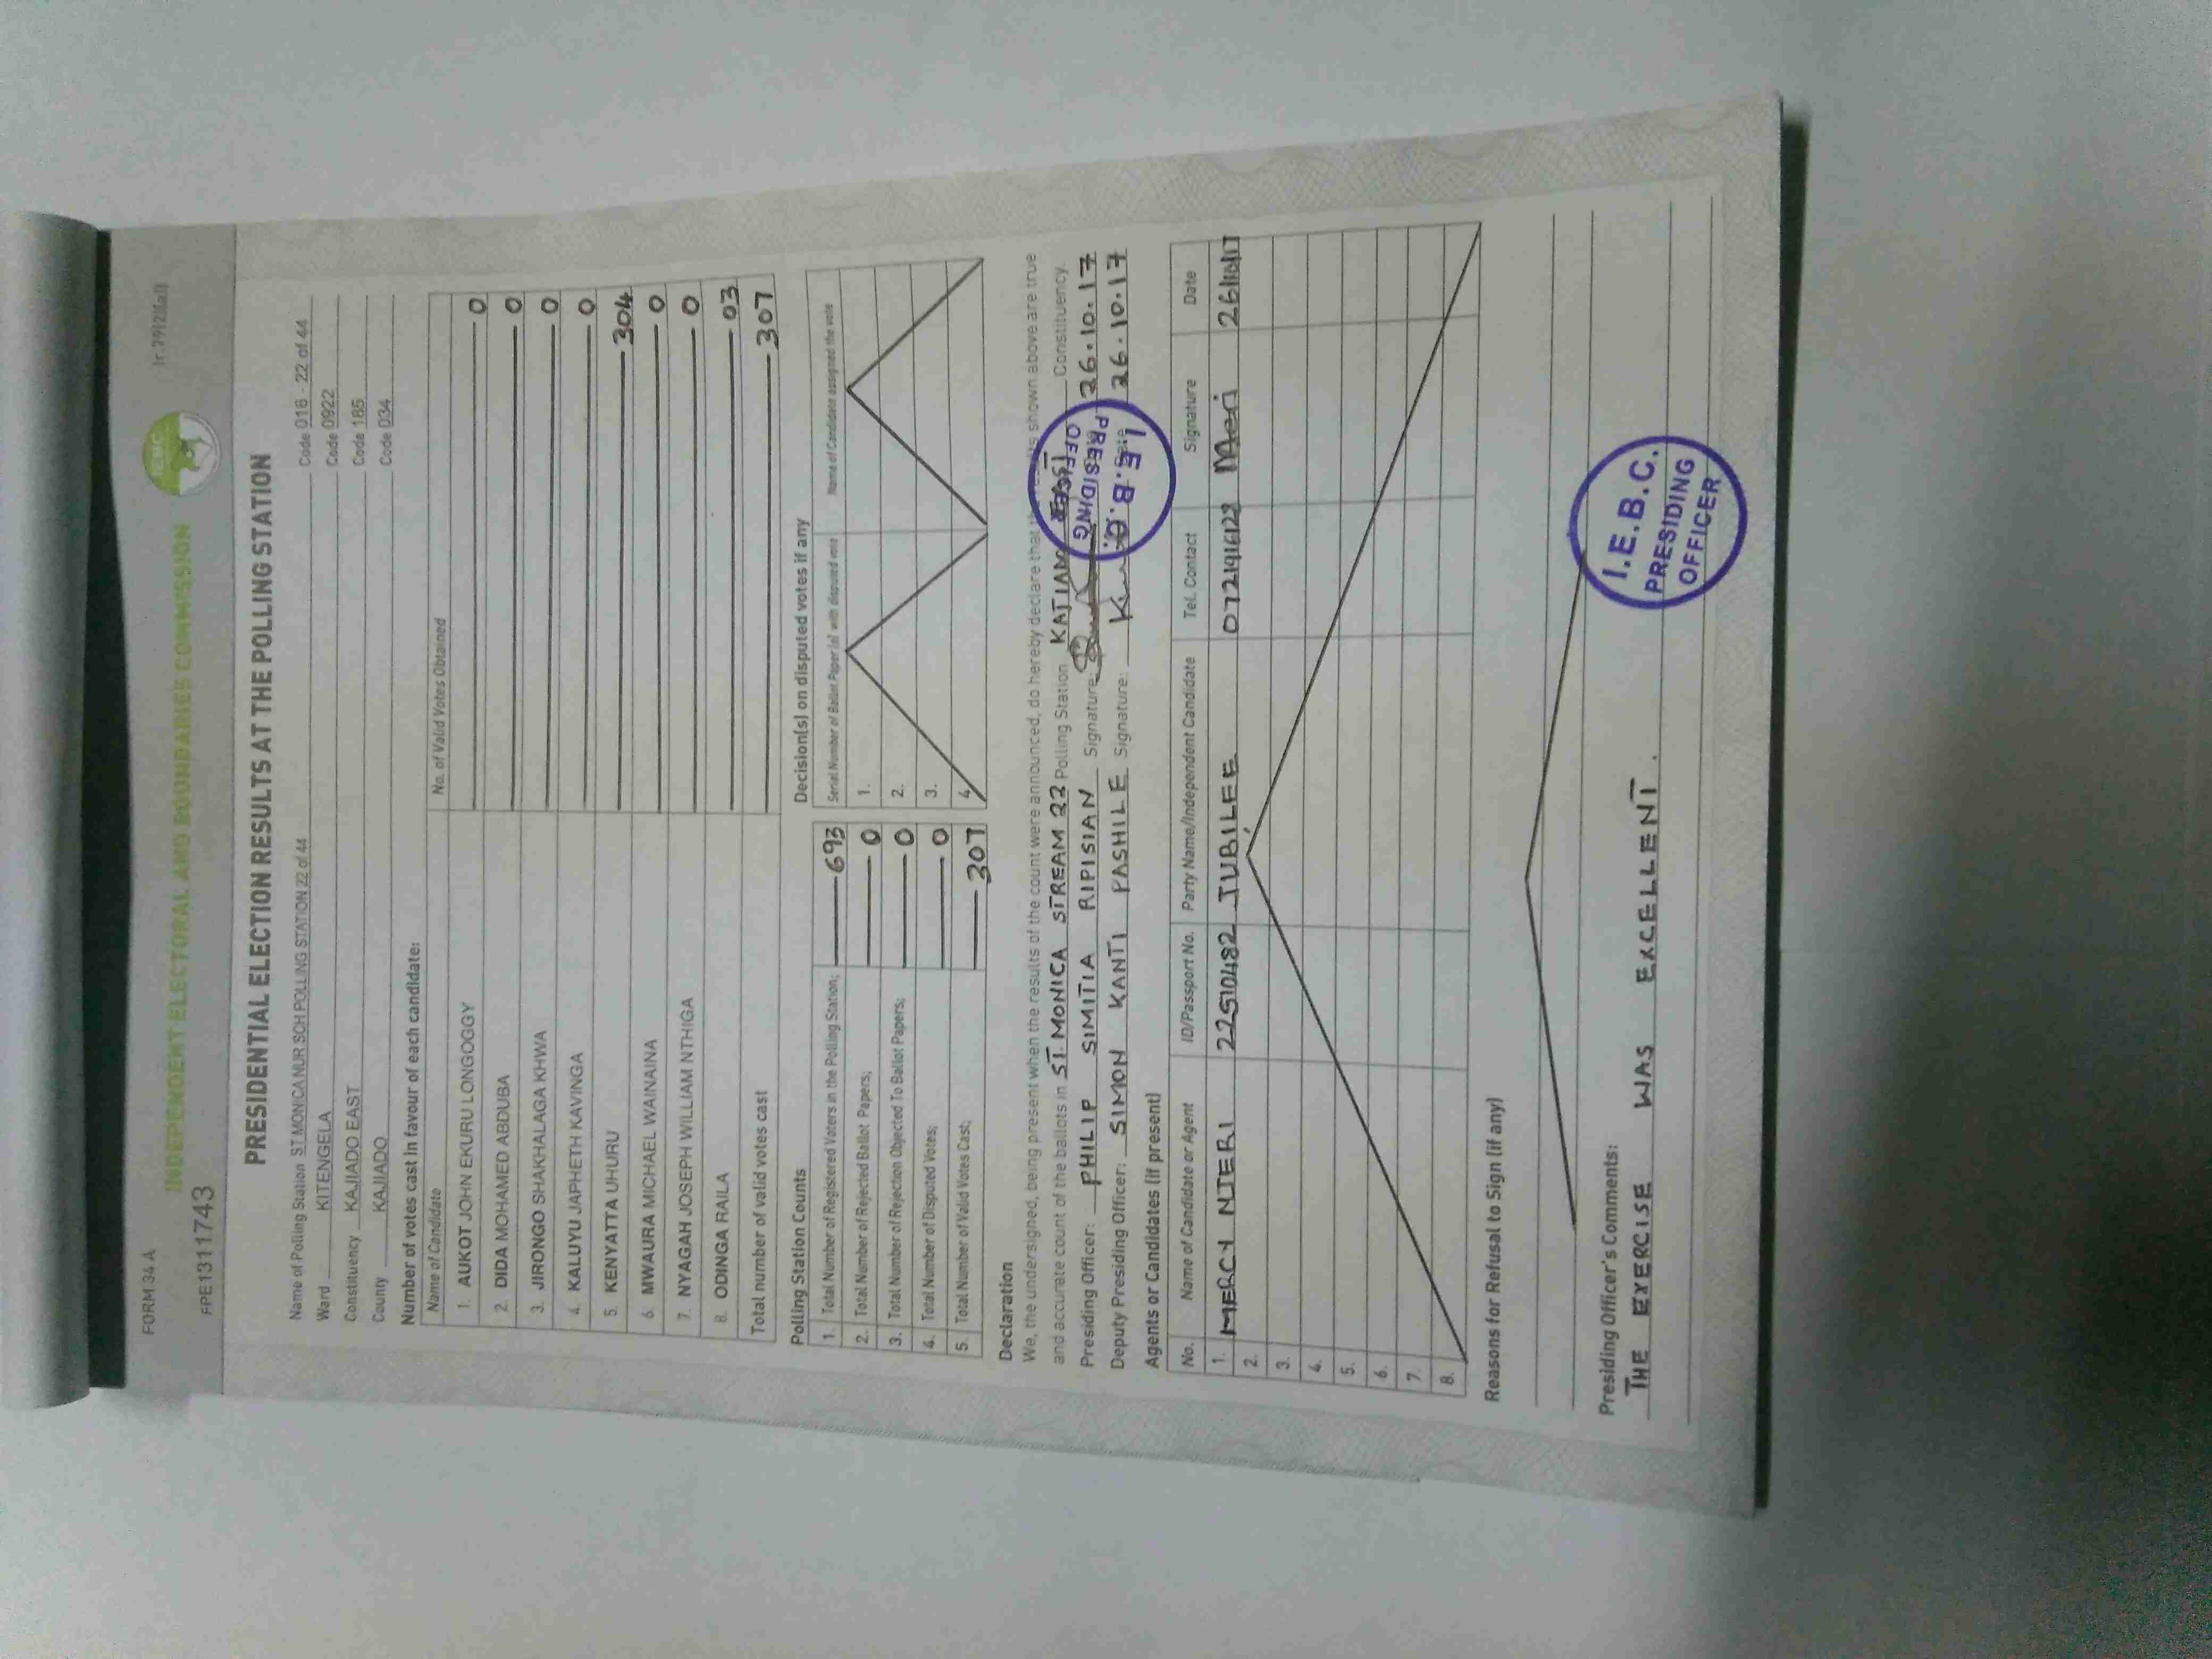 FORM 34 A
INDEPENDENT ELECTORAL AND BOUNDARIES COMMISSION
IEBC
FPE1311743
PRESIDENTIAL ELECTION RESULTS AT THE POLLING STATION
Name of Polling Station ST MONICA NUR SCH POLLING STATION 22 of 44 Code 018 - 22 of 44
Ward KITENGELA Code 0922
Constituency KAJIADO EAST Code 185
County KAJIADO Code 034
Number of votes cast in favour of each candidate:
Name of Candidate No. of Valid Votes Obtained
1. AUKOT JOHN EKURU LONGOGGY 0
2. DIDA MOHAMED ABDUBA 0
3. JIRONGO SHAKHALAGA KHWA 0
4. KALUYU JAPHETH KAVINGA 0
5. KENYATTA UHURU 304
6. MWAURA MICHAEL WAINAINA 0
7. NYAGAH JOSEPH WILLIAM NTHIGA 0
8. ODINGA RAILA 03
Total number of valid votes cast 307
Polling Station Counts
1. Total Number of Registered Voters in the Polling Station; 693
2. Total Number of Rejected Ballot Papers; 0
3. Total Number of Rejection Objected To Ballot Papers; 0
4. Total Number of Disputed Votes; 0
5. Total Number of Valid Votes Cast; 307
Decision(s) on disputed votes if any
Serial Number of Ballot Paper (s) with disputed vote Name of Candidate assigned the vote
1.
2.
3.
4.
Declaration
We, the undersigned, being present when the results of the count were announced, do hereby declare that shown above are true
and accurate count of the ballots in ST. MONICA STREAM 22 Polling Station KATIADO EAST Constituency.
Presiding Officer: PHILIP SIMITIA RIPISIAN Signature: 26.10.17
Deputy Presiding Officer: SIMON KANTI PASHILE Signature: 26.10.17
I.E.B.C.
PRESIDING
OFFICER
Agents or Candidates (if present)
No. Name of Candidate or Agent ID/Passport No. Party Name/Independent Candidate Tel. Contact Signature Date
1. MERCY NJERI 22510482 JUBILEE 26/10/17
2.
3.
4.
5.
6.
7.
8.
Reasons for Refusal to Sign (if any)
Presiding Officer's Comments:
THE EXERCISE WAS EXCELLENT.
I.E.B.C.
PRESIDING
OFFICER